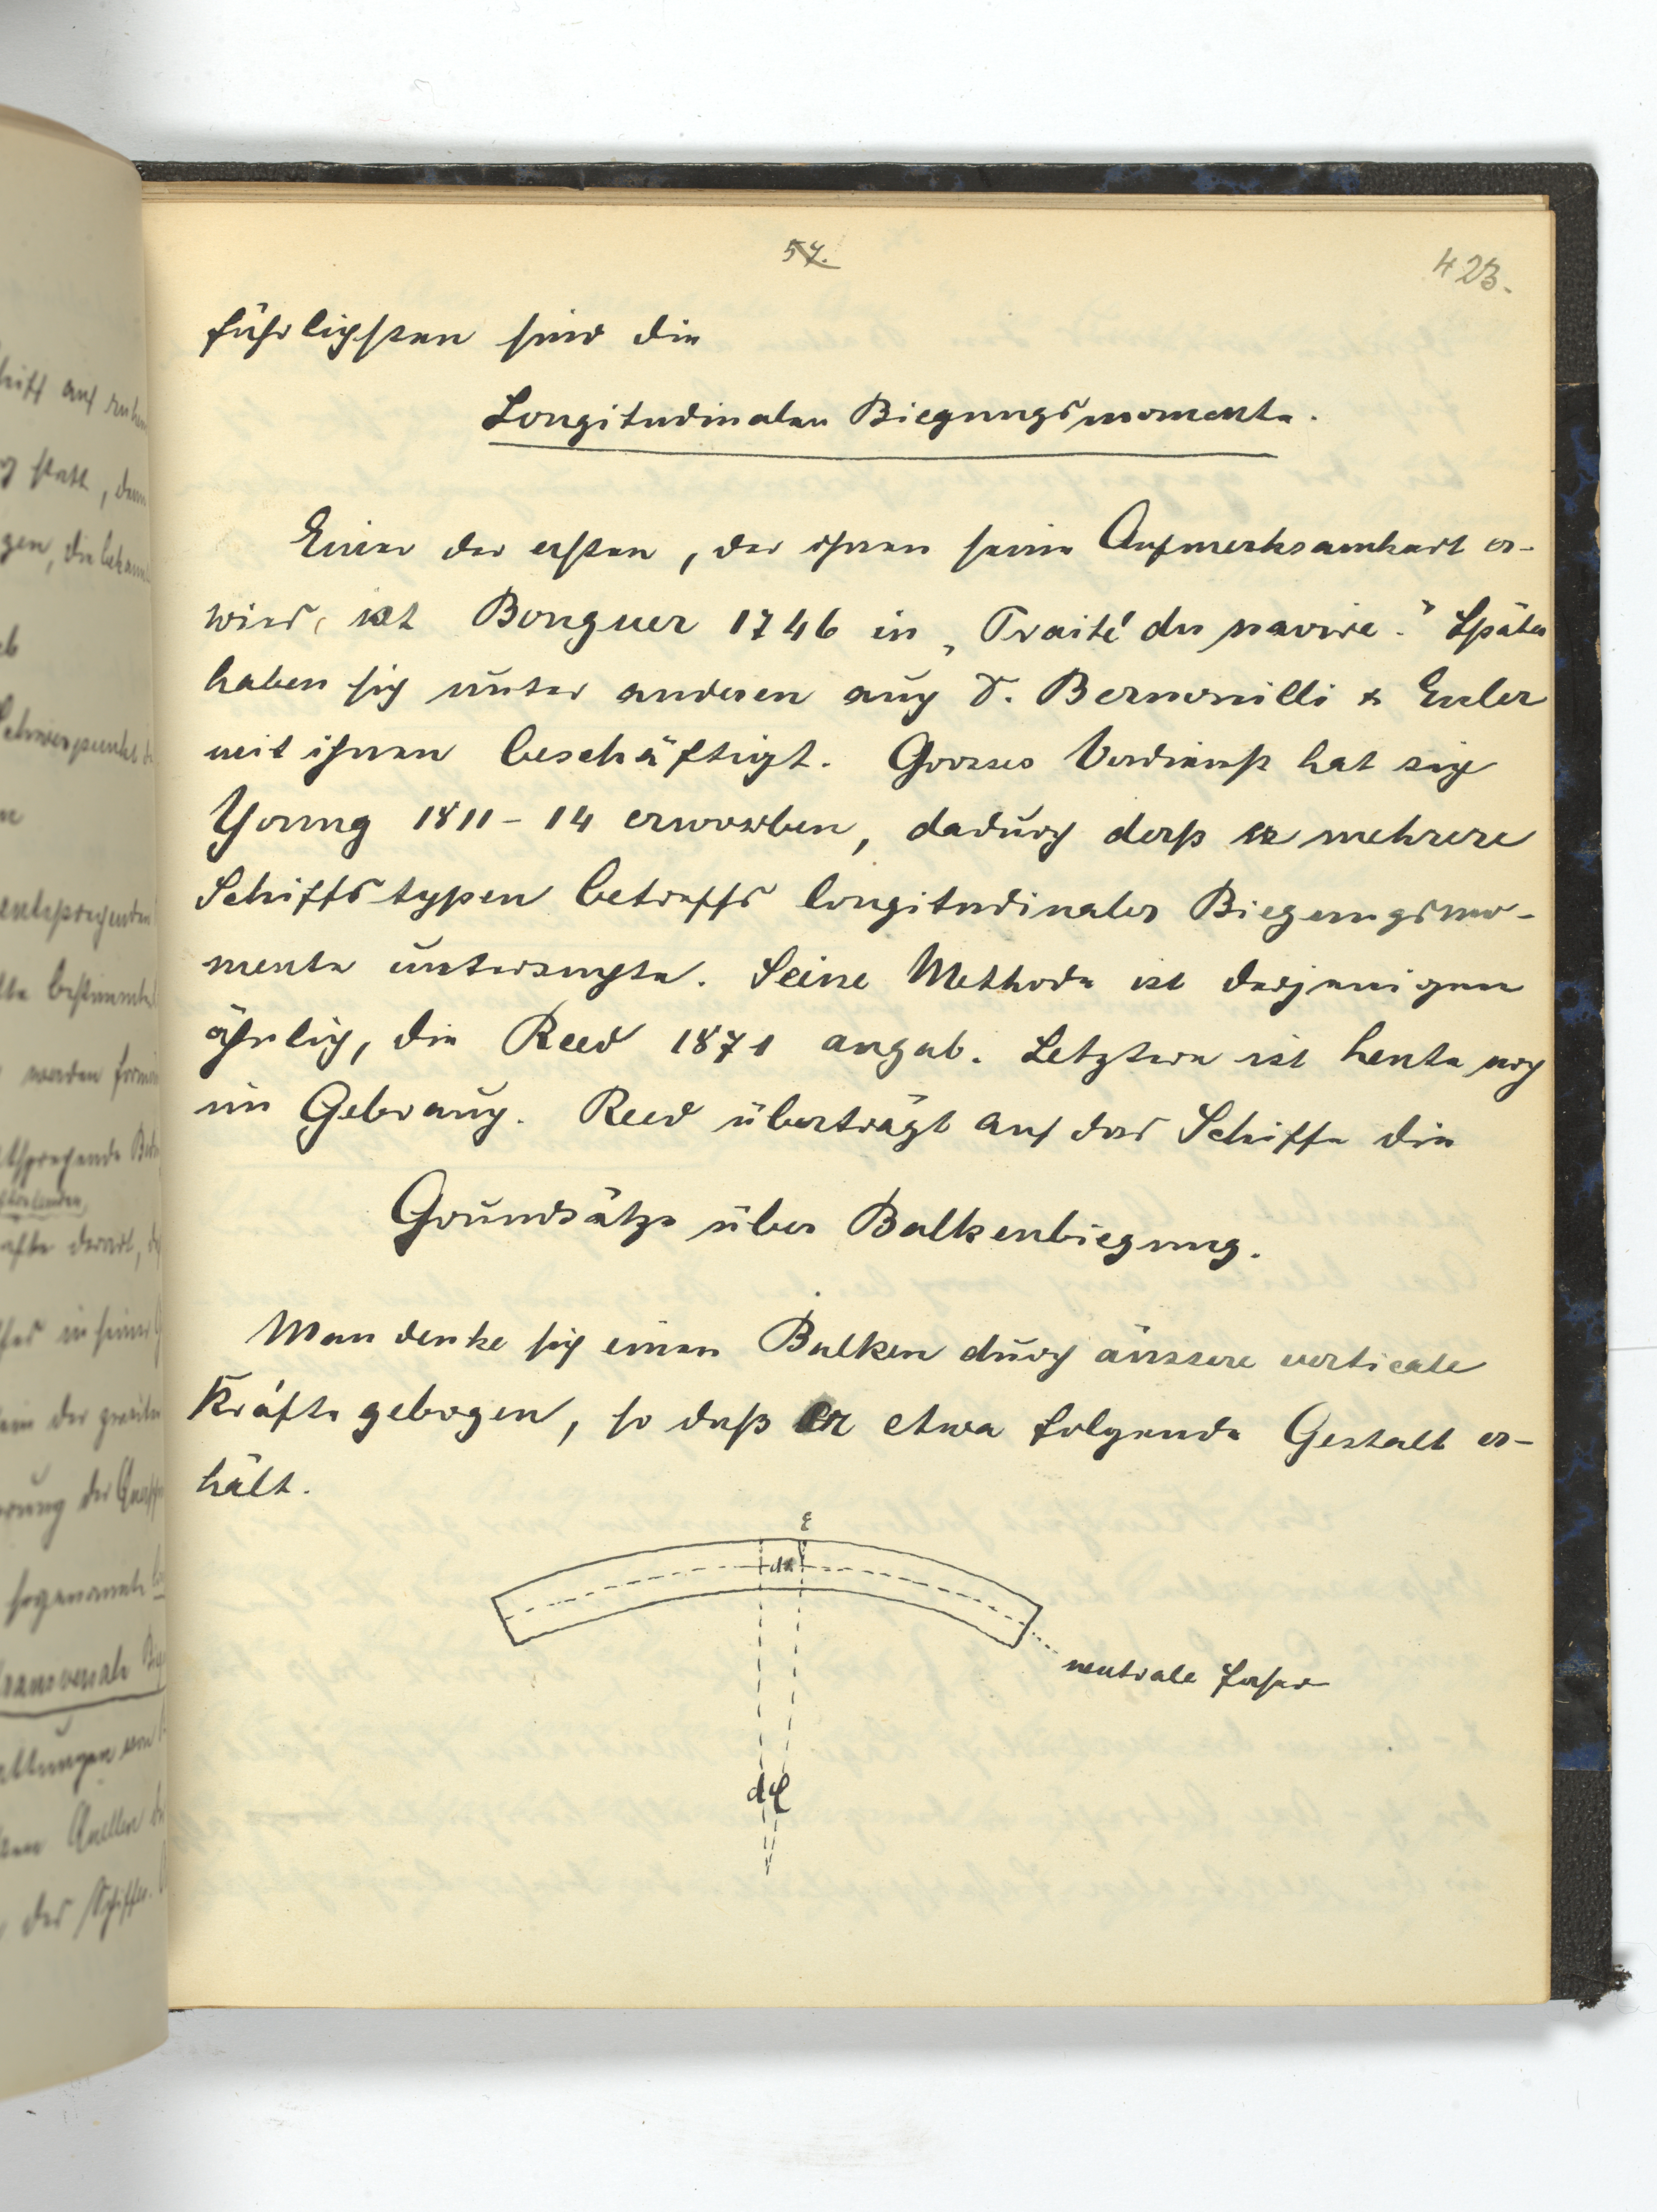 57.
423.
führlichsten sind die
Longitudinalen Biegungsmomente.
Einer der ersten, der ihnen seine Aufmerksamkeit er-
wies, ist Bouguer 1746 in „Traité du navire." Später
haben sich unter anderen auch D. Bernouilli & Euler
mit ihnen beschäftigt. Grosses Verdienst hat sich
Young 1811-14 erworben, dadurch dass er mehrere
Schiffstypen betreffs longitudinaler Biegungsmo-
mente untersuchte. Seine Methode ist derjenigen
ähnlich, die Reed 1871 angab. Letztere ist heute noch
im Gebrauch. Reed überträgt auf das Schiffe die
Grundsätze über Balkenbiegung.
Man denke sich einen Balken durch äussere verticale
Kräfte gebogen, so daß er etwa folgende Gestalt er-
hält.
ξ
dx
neutrale Faser
dφ